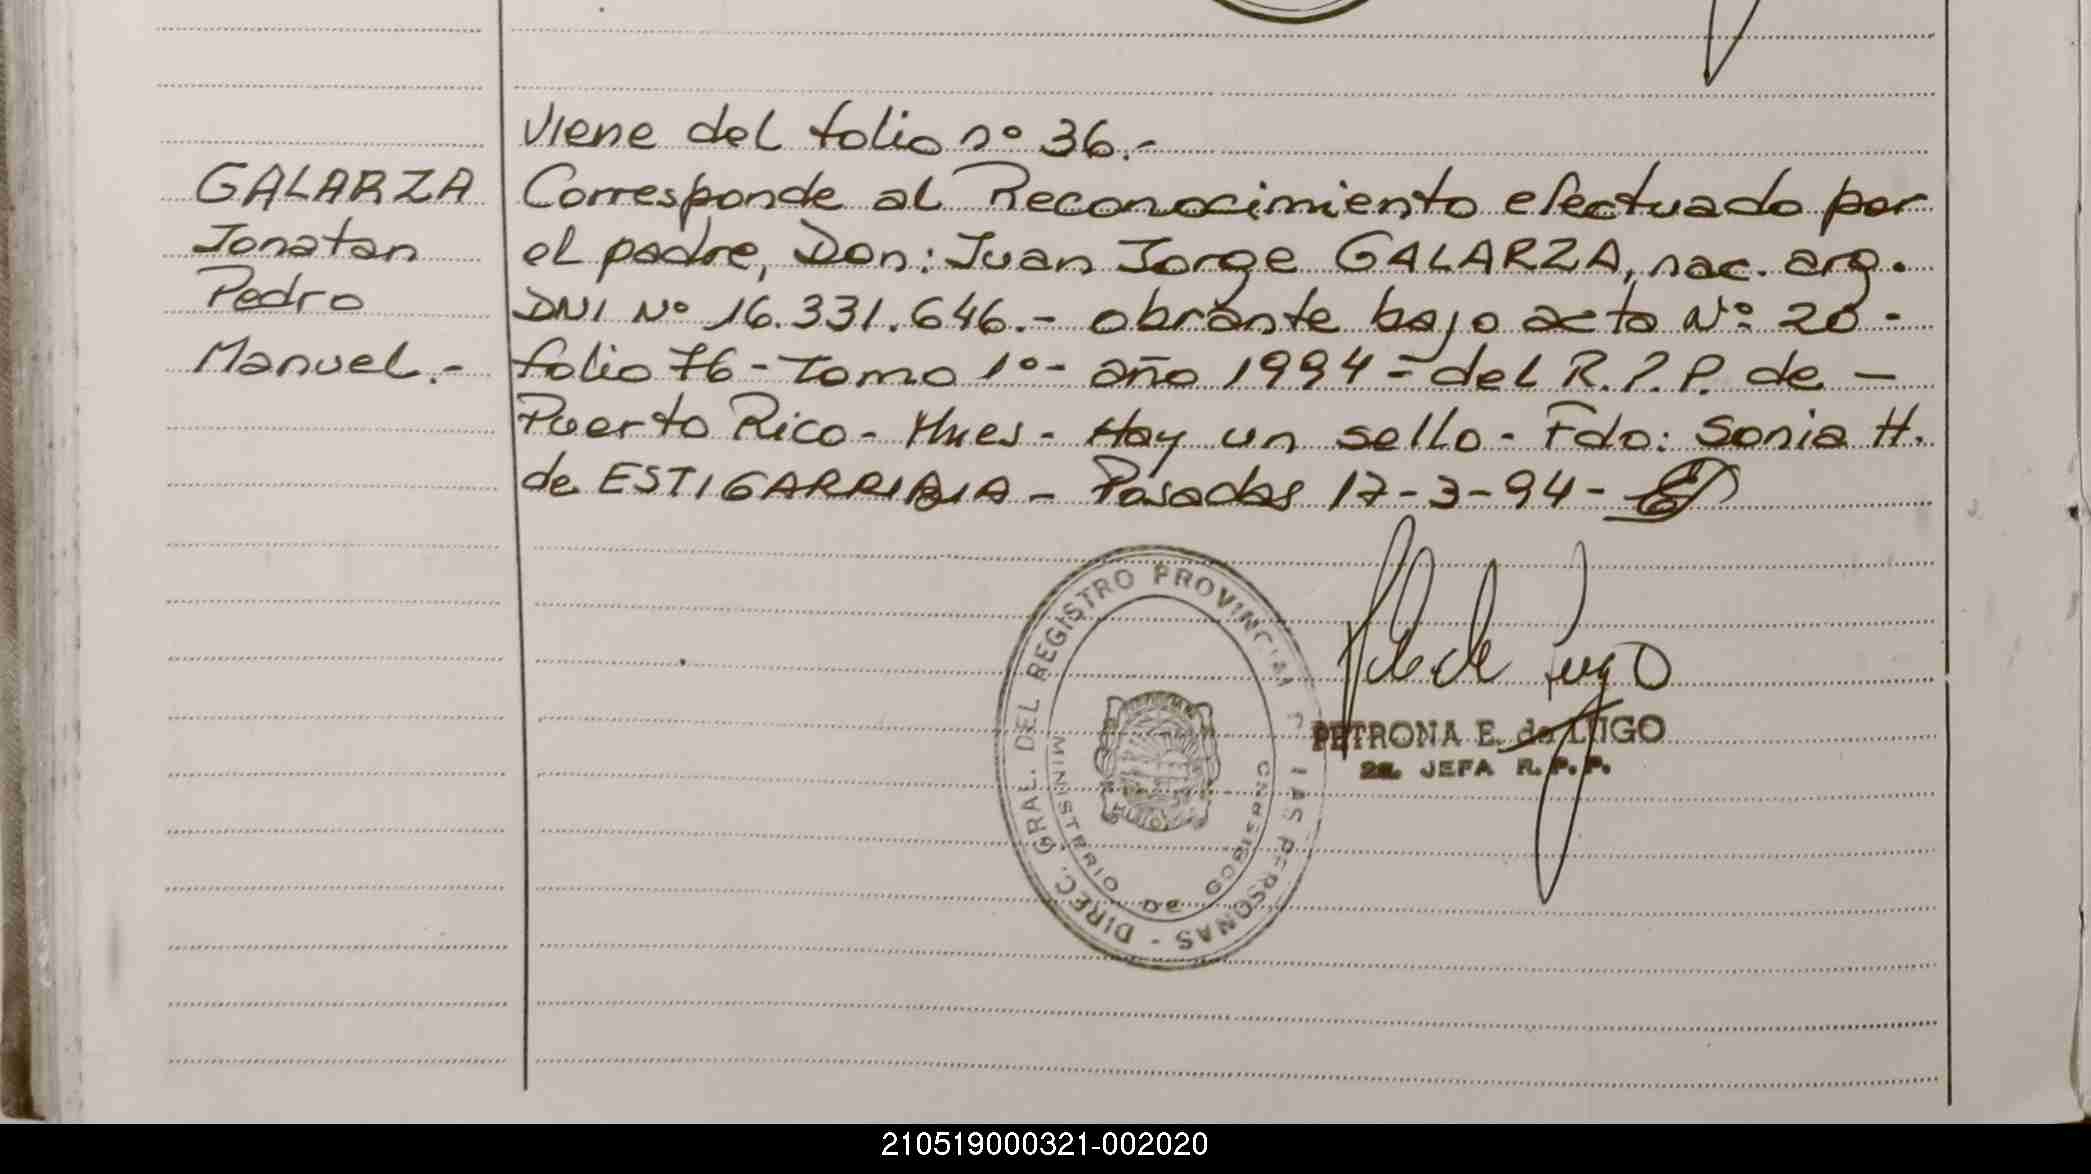 Viene del folio nº 36.-
GALARZA
Jonatan
Pedro
Manuel.-
Corresponde al Reconocimiento efectuado por
el padre, Don: Juan Jorge GALARZA, nac. arg.
DNI Nº 16.331.646.- obrante bajo acta Nº: 20 -
folio 76 - Tomo 1º - año 1994 - del R.P.P. de -
Puerto Rico - Mnes - Hay un sello - Fdo: Sonia H.
de ESTIGARRIBIA - Posadas 17-3-94 -
DIREC. GRAL. DEL REGISTRO PROVINCIAL DE LAS PERSONAS -
MINISTERIO DE GOBIERNO
PETRONA E. de LUGO
2a. JEFA R.P.P.
210519000321-002020